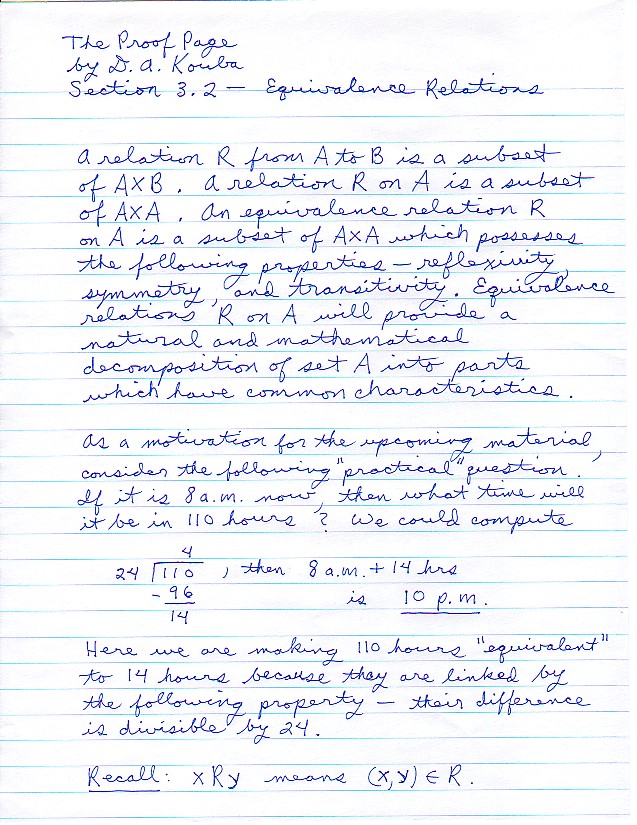 The Proof Page
by D. A. Kouba
Section 3.2 — Equivalence Relations
A relation R from A to B is a subset
of A×B. A relation R on A is a subset
of A×A. An equivalence relation R
on A is a subset of A×A which possesses
the following properties — reflexivity,
symmetry, and transitivity. Equivalence
relations R on A will provide a
natural and mathematical
decomposition of set A into parts
which have common characteristics.
As a motivation for the upcoming material,
consider the following "practical" question.
If it is 8 a.m. now, then what time will
it be in 110 hours? We could compute
4
24 | 110 , then 8 a.m. + 14 hrs
- 96 is 10 p.m.
14
Here we are making 110 hours "equivalent"
to 14 hours because they are linked by
the following property — their difference
is divisible by 24.
Recall: x R y means (x,y) ∈ R.